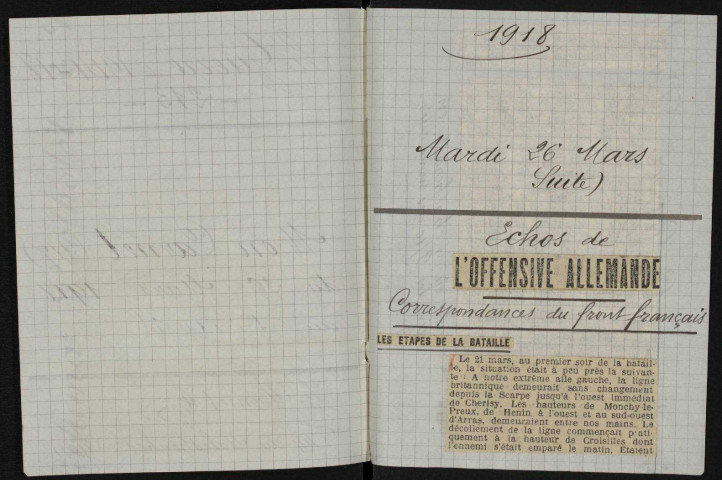 1918
Mardi 26 Mars
Suite)
Echos de
L'OFFENSIVE ALLEMANDE
Correspondances du front français
LES ETAPES DE LA BATAILLE
Le 21 mars, au premier soir de la batail-
le, la situation était à peu près la suivan-
te : A notre extrême aile gauche, la ligne
britannique demeurait sans changement
depuis la Scarpe jusqu'à l'ouest immédiat
de Cherisy. Les hauteurs de Monchy-le-
Preux, de Henin à l'ouest et au sud-ouest
d'Arras, demeuraient entre nos mains. Le
décollement de la ligne commençait prati-
quement à la hauteur de Croisilles dont
l'ennemi s'était emparé le matin. Etaient